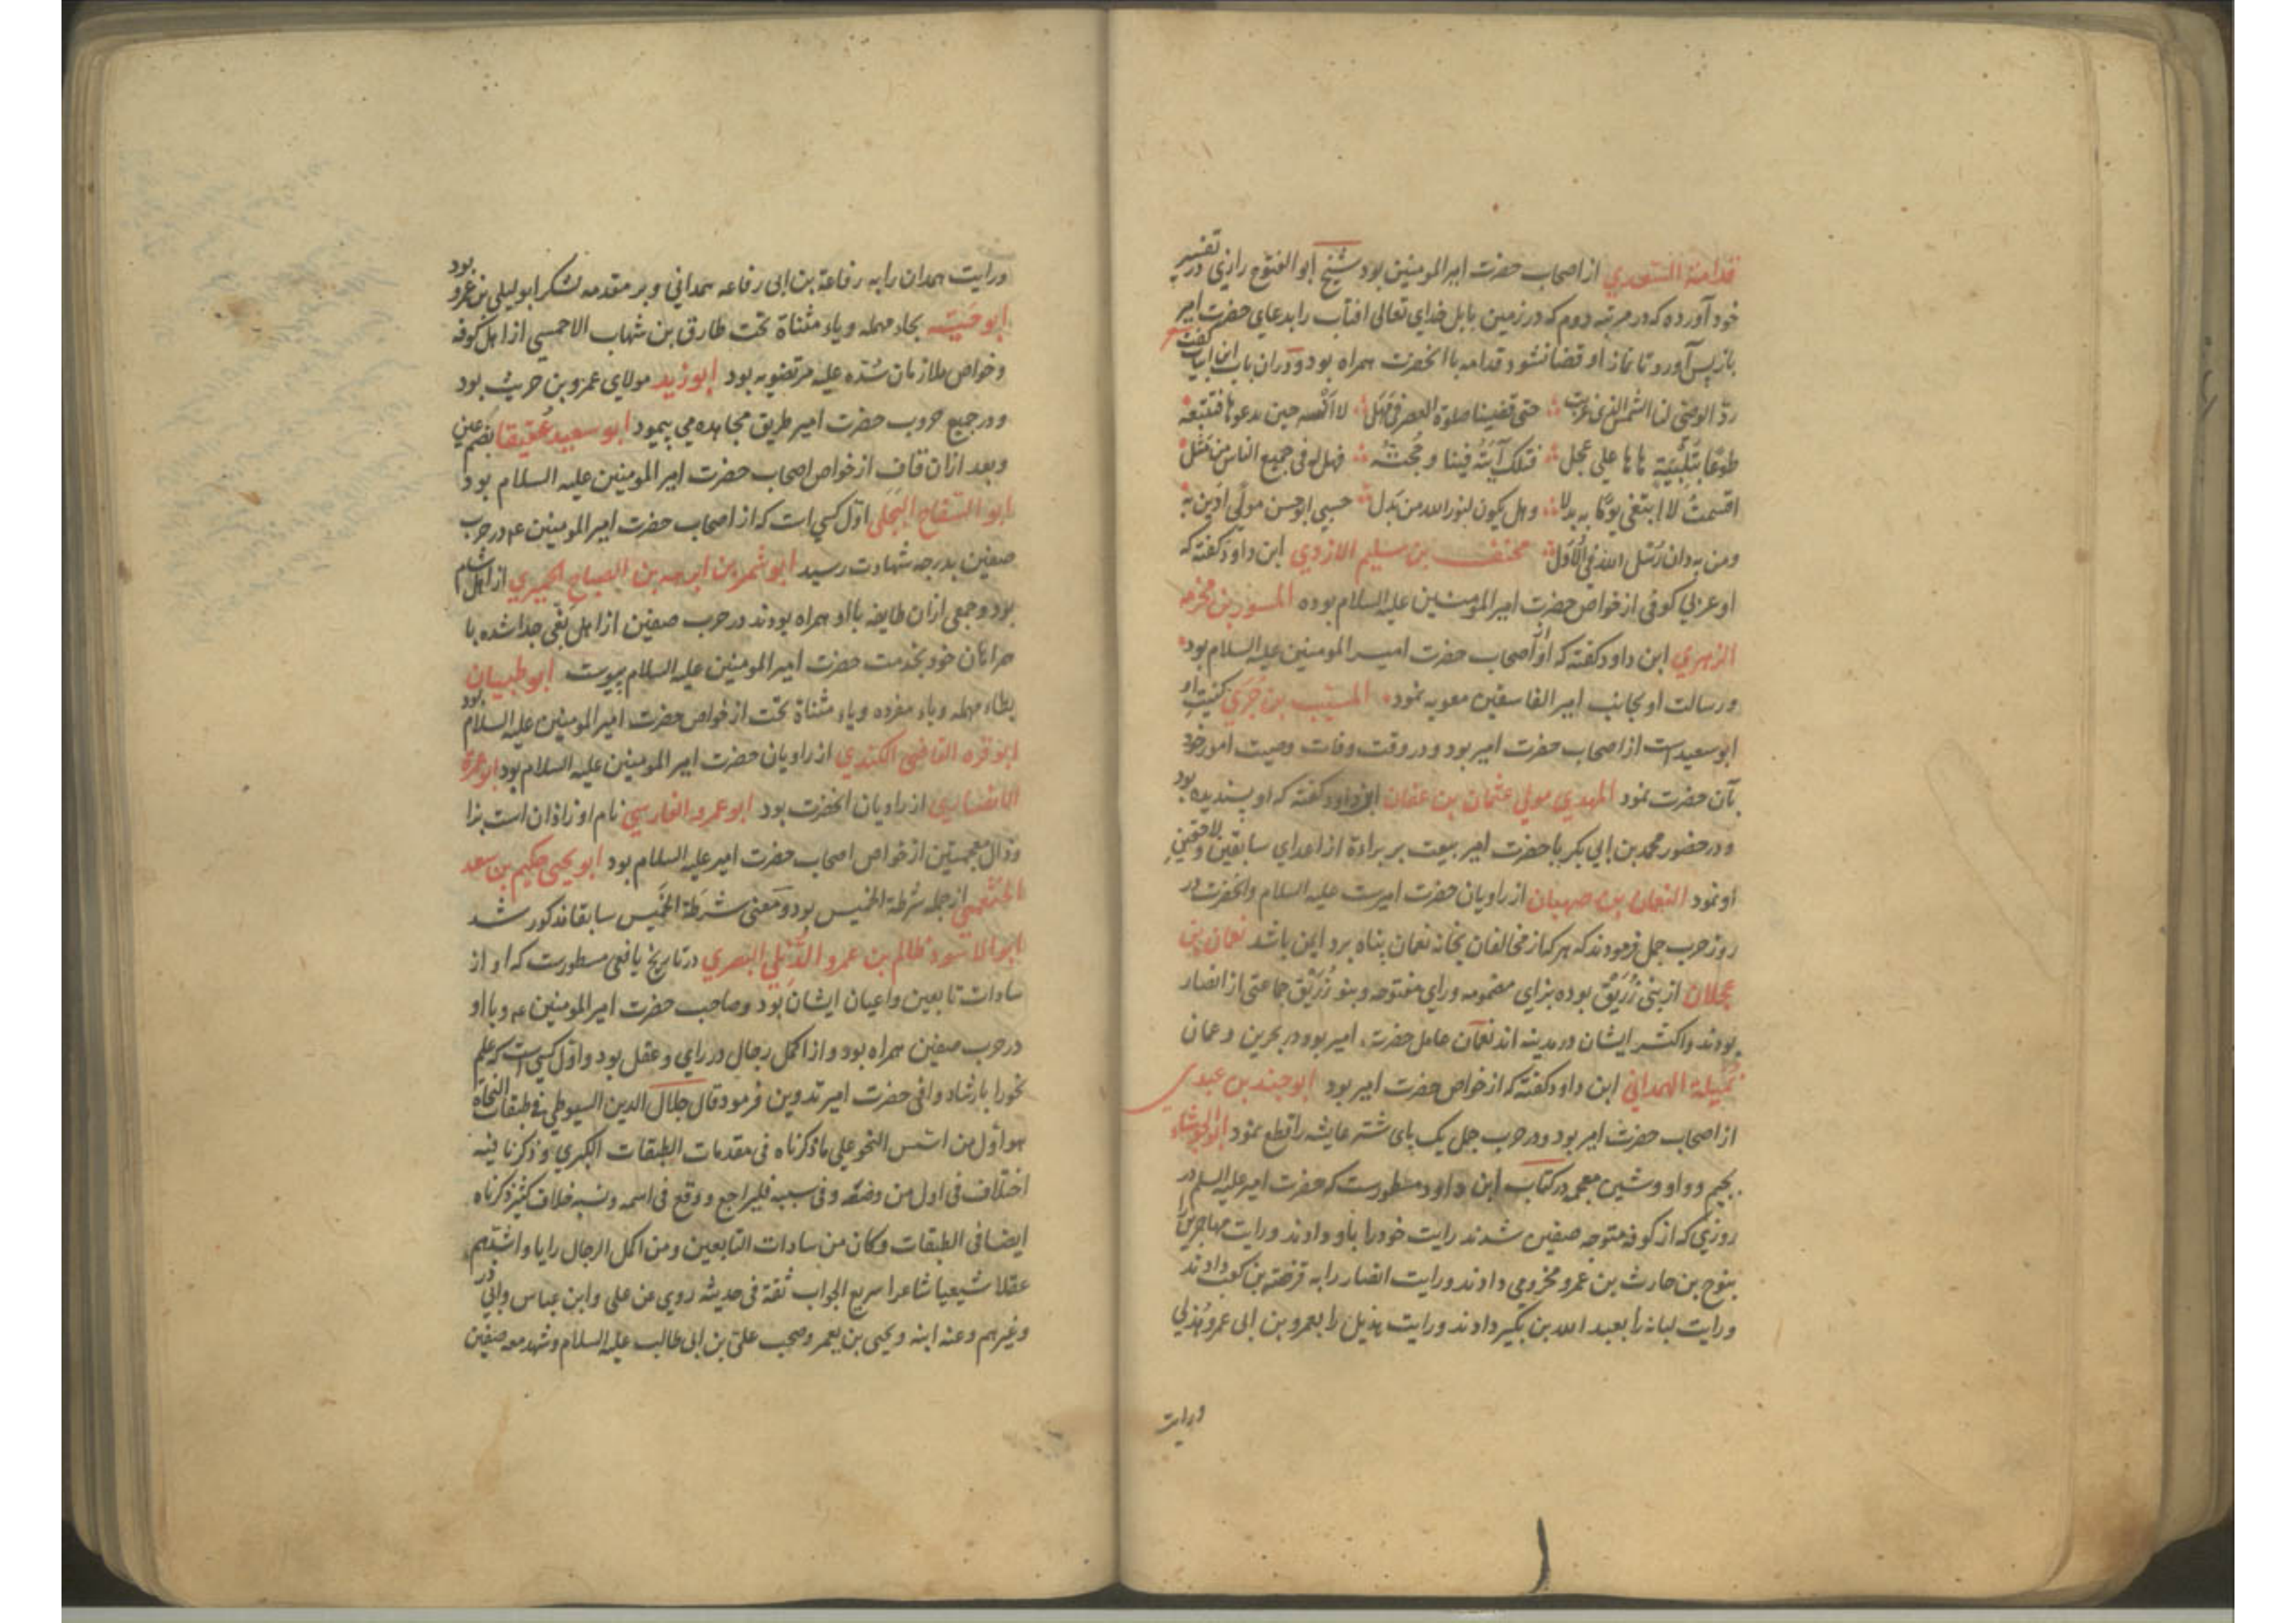 قدامة السعدي از اصحاب حضرت امیر المومنین بود شیخ ابو الفتوح رازی در تفسیر
خود آورده که در مرتبه دوم که در زمین بابل خدای تعالی افتاب را بدعای حضرت امیر
باز پس آورد تا نماز او قضا نشود قدامه با انحضرت همراه بود و دران باب این ابیات گفت
ردّ الوصی لنا الشمس التی غربت حتی قضینا صلوة العصر فی مهل لا انسه حین یدعوها فتتبعه
طوعًا بتلبیة هاها علی عجل فتلک آیته فینا و حجته فهل له فی جمیع الناس من مثل
اقسمت لا ابتغی یومًا به بدلا وهل یکون لنور الله من بدل حسبی ابو حسن مولی ادین به
ومن به دان رسل الله فی الاول مخنف بن سلیم الازدی ابن داود گفته که
او عربی کوفی از خواص حضرت امیر المومنین علیه السلام بوده المسور بن مخرمه
الزهری ابن داود گفته که او از اصحاب حضرت امیر المومنین علیه السلام بود
و رسالت او بجانب امیر الفاسقین معویه نمود المسیب بن حزن کنیت او
ابو سعید است از اصحاب حضرت امیر بود و در وقت وفات وصیت امور خود
بآن حضرت نمود المهدی مولی عثمان بن عفان ابن داود گفته که او پسندیده بود
و در حضور محمد بن ابی بکر با حضرت امیر بیعت بر براءة از اعدای سابقین و لاحقین
او نمود النعمان بن صهبان از راویان حضرت امیرست علیه السلام و انحضرت در
روز حرب جمل فرمودند که هر که از مخالفان بخانه نعمان پناه برد ایمن باشد نعمان بن
عجلان از بنی زُرَیْق بوده بزای مضمومه و رای مفتوحه و بنو زُرَیْق جماعتی از انصار
بودند و اکثر ایشان در مدینه اند نعمان عامل حضرت امیر بود در بحرین و عمان
نمیلة الهمدانی ابن داود گفته که از خواص حضرت امیر بود ابو جند بن عبدی
از اصحاب حضرت امیر بود و در حرب جمل یک پای شتر عایشه را قطع نمود ابو الجوشاء
بجیم و واو و شین معجمه در کتاب ابن داود مسطورست که حضرت امیر علیه السلم در
روزی که از کوفه متوجه صفین شدند رایت خود را باو دادند و رایت مهاجرین
بنوح بن حارث بن عمرو مخزومی دادند و رایت انصار را به قرضة بن کعب دادند
و رایت کنانه را بعبد الله بن بکیر دادند و رایت هذیل را بعمرو بن ابی عمرو هُذلی
ورایت
ورایت همدان را به رفاعة بن ابی رفاعه همدانی و بر مقدمه لشکر ابو لیلی بن عمرو بود
ابو حیّة بحاء مهمله و یاء مثناة تحت طارق بن شهاب الاحمسی از اهل کوفه
و خواص ملازمان سُدّه علیه مرتضویه بود ابو زید مولای عمرو بن حریث بود
و در جمیع حروب حضرت امیر طریق مجاهده می پیمود ابو سعید عُقیقا بضم عین
و بعد ازان قاف از خواص اصحاب حضرت امیر المومنین علیه السلام بود
ابو السفاح البجلی اوّل کسی است که از اصحاب حضرت امیر المومنین ع در حرب
صفین بدرجه شهادت رسید ابو شمر بن ابرهه بن الصباح الحمیری از اهل شام
بود و جمعی ازان طایفه با او همراه بودند در حرب صفین از اهل بغی جدا شده با
همراهان خود بخدمت حضرت امیر المومنین علیه السلام پیوست ابو طبیان
بطاء مهمله و باء مفرده و یاء مثناة تحت از خواص حضرت امیر المومنین علیه السلام بود
ابو قره القاضی الکندی از راویان حضرت امیر المومنین علیه السلام بود ابو عمرة
الانصاری از راویان انحضرت بود ابو عمرو الفارسی نام او زاذان است بزا
و ذال معجمتین از خواص اصحاب حضرت امیر علیه السلام بود ابو یحیی حکیم بن سعد
الخثعمی از جمله شرطة الخمیس بود و معنی شرطة الخمیس سابقا مذکور شد
ابو الاسود ظالم بن عمرو الدُّئلی البصری در تاریخ یافعی مسطورست که او از
سادات تابعین و اعیان ایشان بود و صاحب حضرت امیر المومنین ع و با او
در حرب صفین همراه بود و از اکمل رجال در رای و عقل بود و اوّل کسی است که علم
نحو را بارشاد وافی حضرت امیر تدوین فرمود قال جلال الدین السیوطی فی طبقات النحاة
هو اوّل من اسّس النحو علی ما ذکرناه فی مقدمات الطبقات الکبری و ذکرنا فیه
اختلاف فی اول من وضعه و فی سببه فلیراجع و وقع فی اسمه و نسبه خلاف کثیر ذکرناه
ایضا فی الطبقات و کان من سادات التابعین و من اکمل الرجال رایا و اشدهم
عقلا شیعیا شاعرا سریع الجواب ثقة فی حدیثه روی عن علی و ابن عباس و ابی ذر
و غیرهم و عنه ابنه و یحیی بن یعمر و صحب علی بن ابی طالب علیه السلام و شهد معه صفین